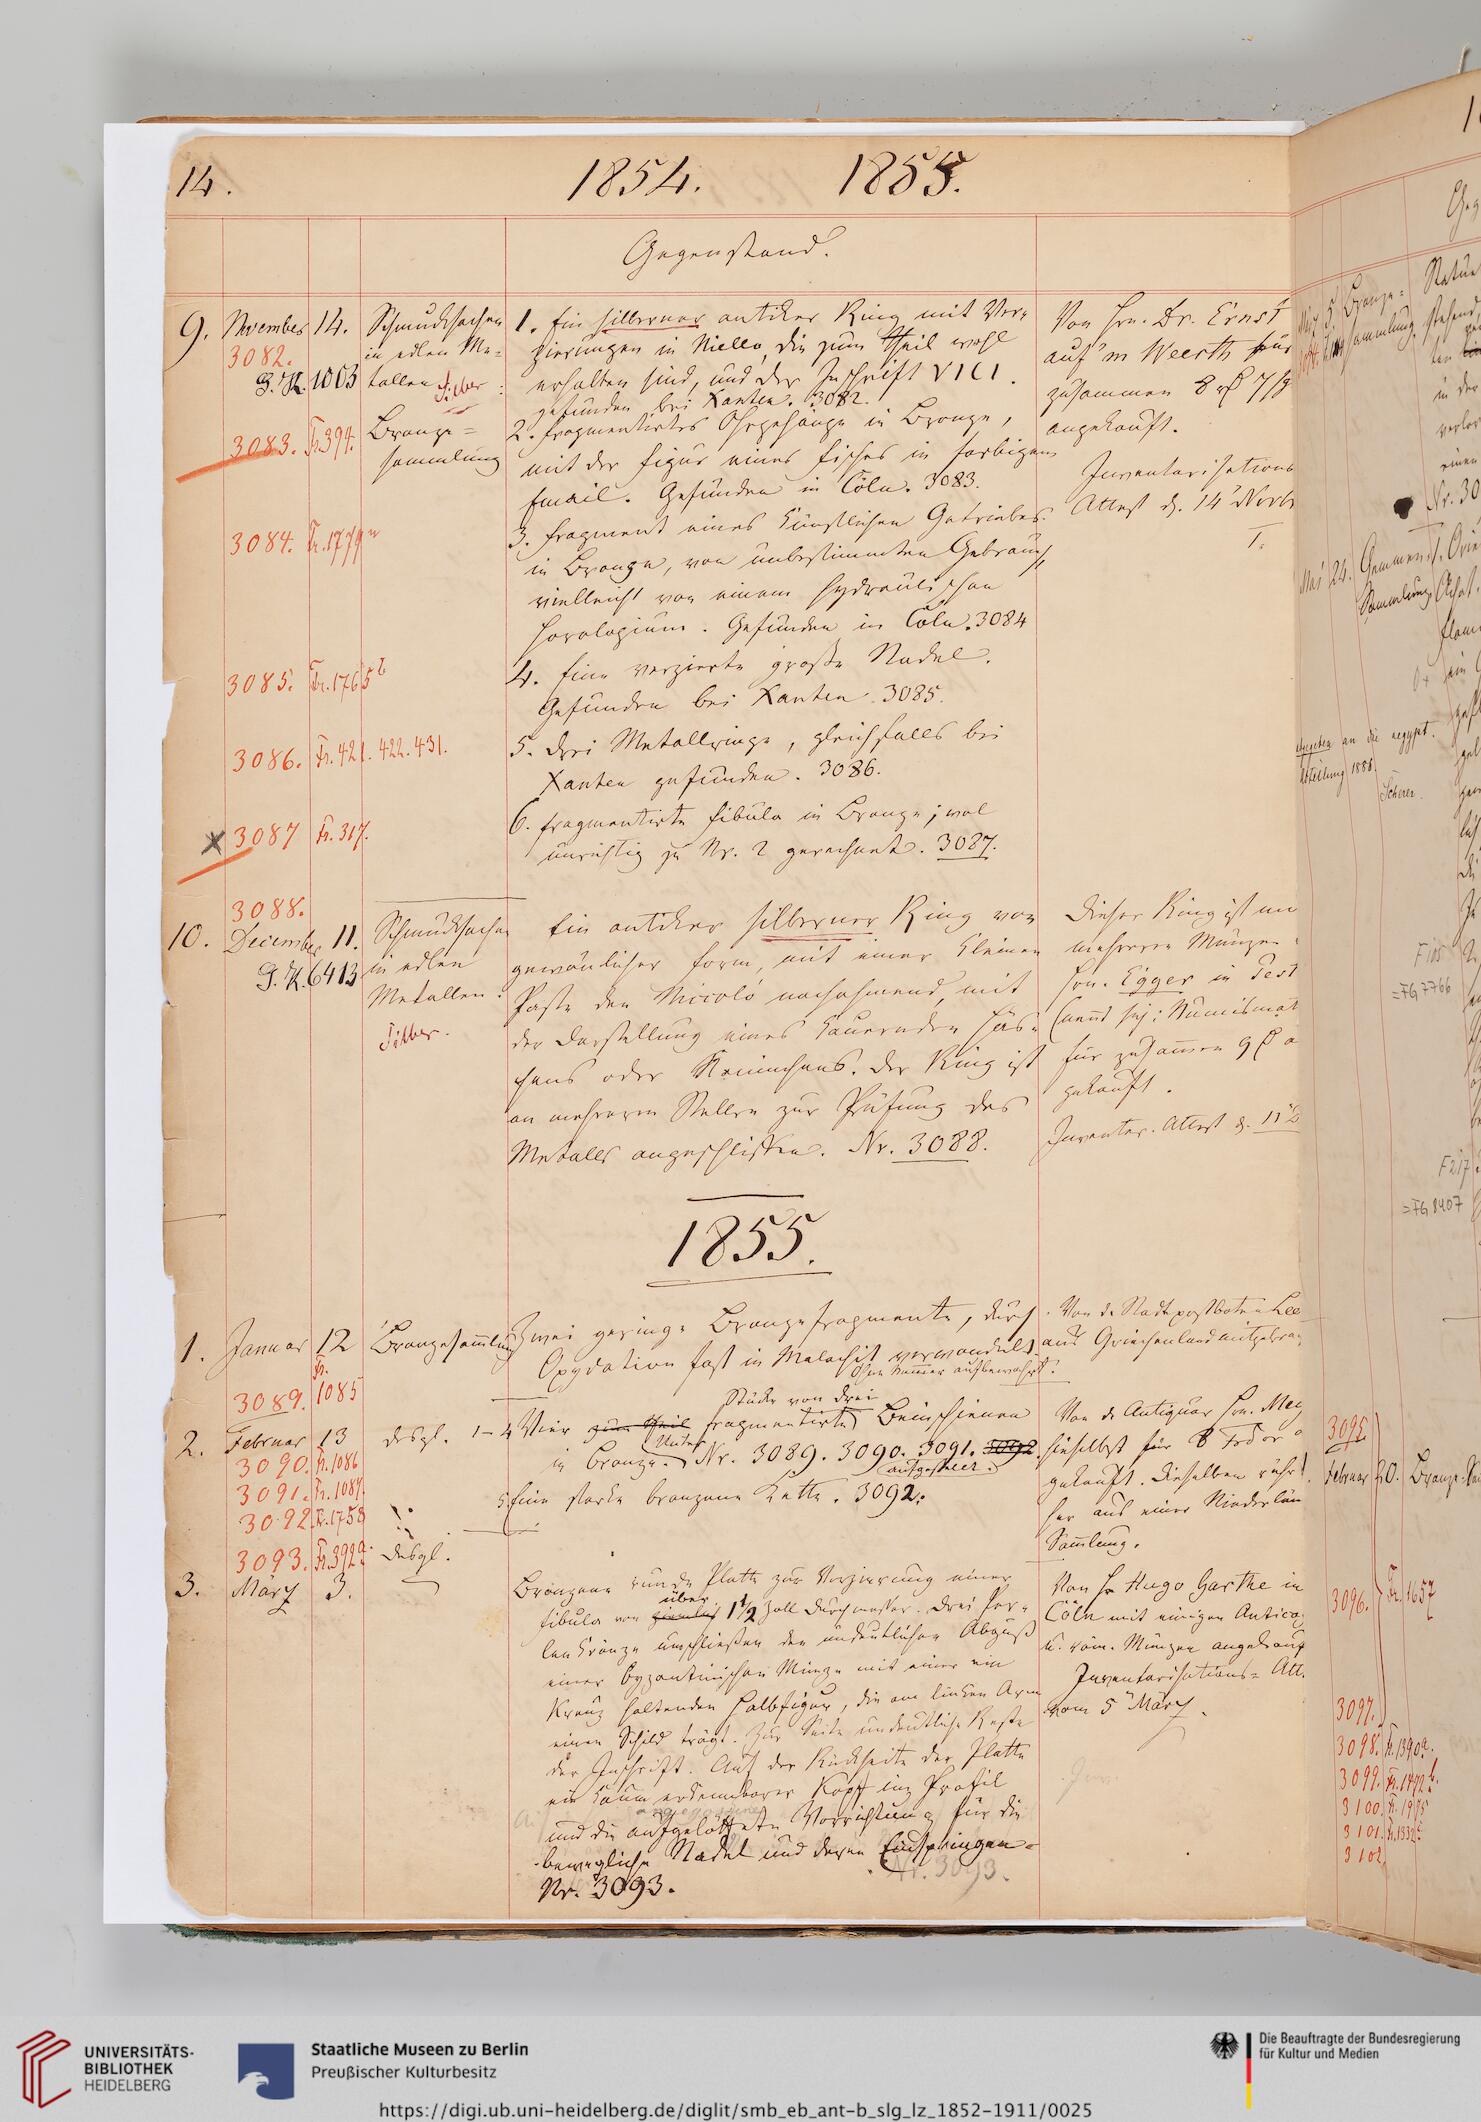 14.
1854. 1855.
Gegenstand.
9. November 14.
3082.
G.K. 1003
Schmucksachen
in edlen Me=
tallen Silber
1. Ein silberner antiker Ring mit Ver=
zierungen in Niello, die zum Theil wohl
erhalten sind, und der Inschrift VICI.
gefunden bei Xanten. 3082.
Von Hrn. Dr. Ernst
auf'm Weerth für
zusammen 8
angekauft.
3083. Fr. 394.
Bronze=
sammlung
2. fragmentirtes Ohrgehänge in Bronze,
mit der Figur eines Fisches in farbigem
Email. Gefunden in Cöln. 3083.
Inventarisations
Attest d. 14 Novbr
3084. Fr. 1779
3. Fragment eines künstlichen Getriebes
in Bronze, von unbestimmten Gebrauch,
vielleicht von einem hydraulischen
Horologium. Gefunden in Cöln. 3084
3085. Fr. 1765
4. Eine verzierte große Nadel.
Gefunden bei Xanten. 3085.
3086. Fr. 421. 422. 431.
5. Drei Metallringe, gleichfalls bei
Xanten gefunden. 3086.
3087 Fr. 317.
6. fragmentirte Fibula in Bronze; wol
unrichtig zu Nr. 2 gerechnet. 3087.
3088.
10. December 11.
G.K. 6413
Schmucksachen
in edlen
Metallen.
Silber.
Ein antiker silberner Ring von
gewönlicher Form, mit einer kleinen
Paste den Niccolo nachahmend, mit
der Darstellung eines kauernden Häs=
chens oder Kaninchens. Der Ring ist
an mehreren Stellen zur Prüfung des
Metalls angeschliffen. Nr. 3088.
Dieser Ring ist
mehreren Münzen
Hrn. Egger in Pest
für zusammen 9
gekauft.
Inventar. Attest d. 11
1855.
1. Januar 12
Bronzesammlung
Zwei geringe Bronzefragmente, durch
Oxydation fast in Malachit verwandelt
Ohne Nummer aufbewahrt.
Von d. Stadtpostboten
aus Griechenland mitgebra
Fr.
3089. 1085
2. Februar 13
desgl. 1–4
Stücke von drei
Vier zum Theil fragmentirte Beinschienen
in Bronze. Unter Nr. 3089. 3090. 3091. 3092
aufgestellt.
3090. Fr. 1086
3091. Fr. 1087.
3092. Fr. 1758
5. Eine starke bronzene Kette. 3092.
Von d. Antiquar Hrn. Mey
hieselbst für 8
gekauft. Dieselben rühr
her aus einer Niederlän
Sammlung.
3093. Fr. 392
desgl.
3. März 3.
Bronzene runde Platte zur Verzierung einer
über
Fibula von ziemlich 1 1/2 Zoll Durchmesser. Drei Per=
lenkränze umschließen den undeutlichen Abguß
einer byzantinischen Münze mit einer ein
Kreuz haltenden Halbfigur, die am linken Arm
einen Schild trägt. Zur Seite undeutliche Reste
der Inschrift. Auf der Rückseite der Platte
ein kaum erkennbarer Kopf im Profil
angegossene
und die aufgelöthete Vorrichtung für die
bewegliche Nadel und deren Einspringen=
Nr. 3093.
Nr. 3093.
Von Hr Hugo Garthe in
Cöln mit einigen
u. röm. Münzen angekauf
Inventarisations= Att.
vom 5 März.
3095
Februar 20.
3096. Fr. 1657
3097.
3098. Fr. 1390a.
3099.
3100.
3101.
3102.
UNIVERSITÄTS-
BIBLIOTHEK
HEIDELBERG
Staatliche Museen zu Berlin
Preußischer Kulturbesitz
Die Beauftragte der Bundesregierung
für Kultur und Medien
https://digi.ub.uni-heidelberg.de/diglit/smb_eb_ant-b_slg_lz_1852-1911/0025